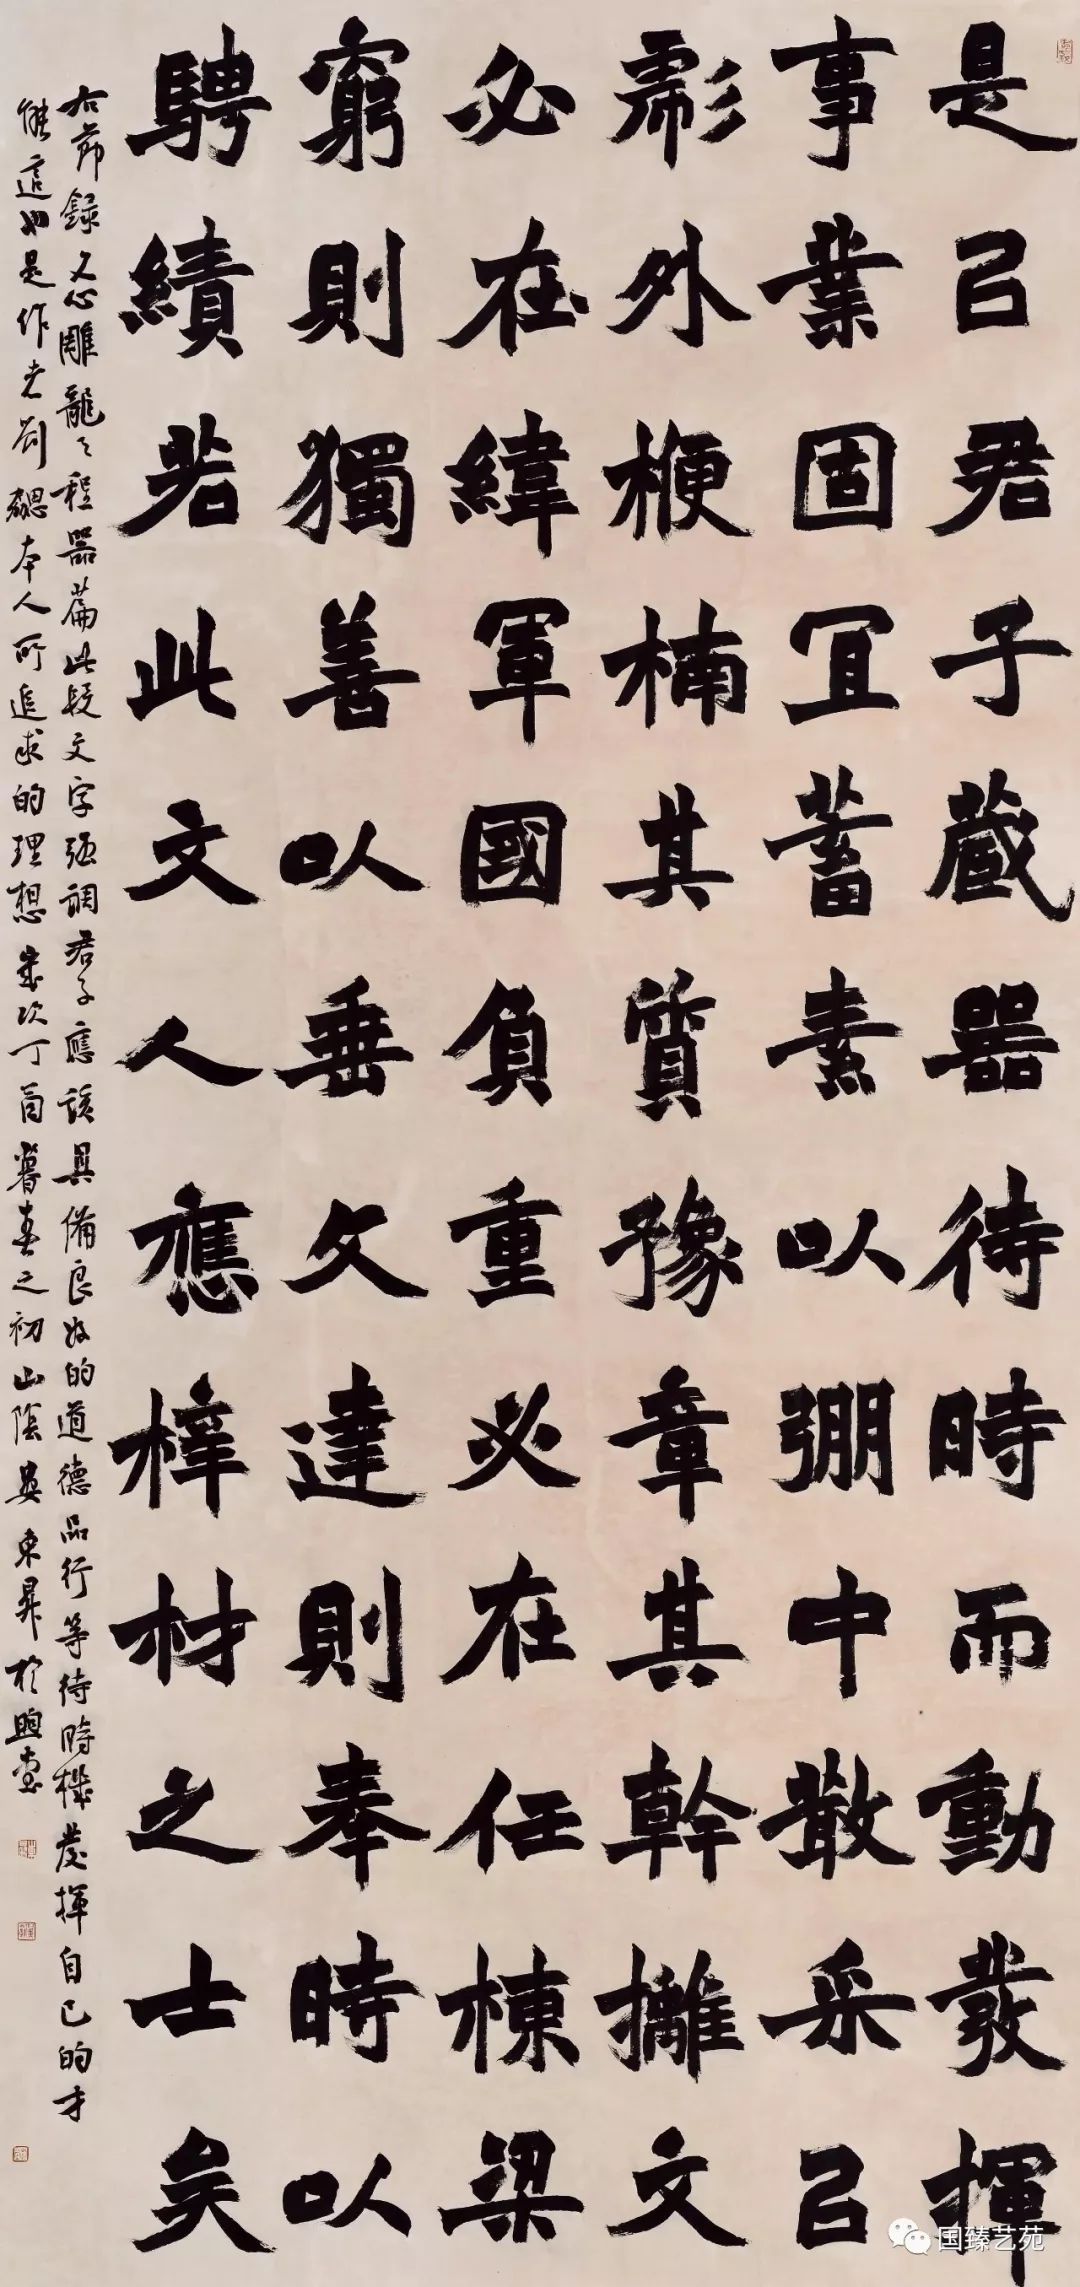 是㠯君子藏器待時而動發揮
事業固宜蓄素以弸中散采㠯
彪外楩楠其質豫章其幹攡文
必在緯軍國負重必在任棟梁
窮則獨善以垂文達則奉時以
騁績若此文人應梓材之士矣
右節録文心雕龍之程器篇此段文字强調君子應該具備良好的道德品行等待時機發揮自己的才
能這也是作者劉勰本人所追求的理想歲次丁酉暮春之初山陰東昇於煦堂
国臻艺苑